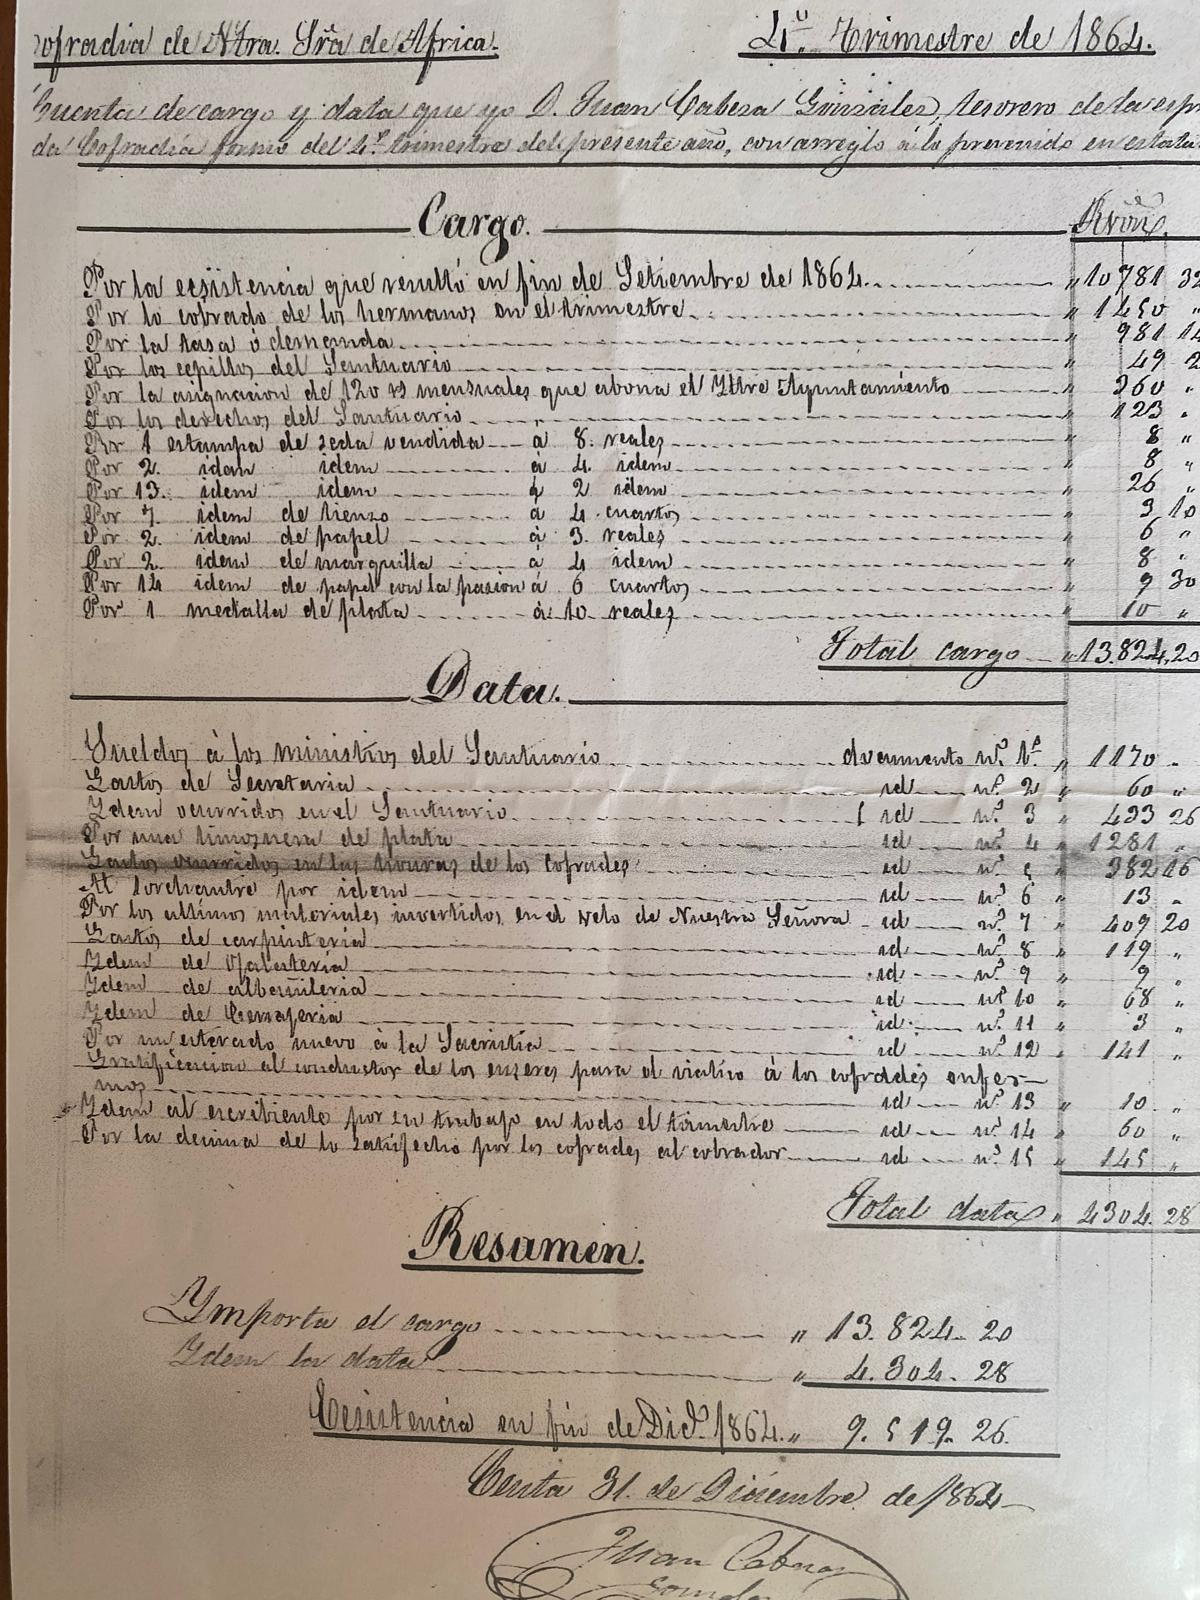 ofradia de Ntra. Sra de Africa.
4º Trimestre de 1864.
Cuenta de cargo y data que yo D. Juan Cabeza González, tesorero de la espr
da Cofradía formo del 4º trimestre del presente año, con arreglo á lo prevenido en estatu
Cargo. Rvon.
Por la ecsistencia que resultó en fin de Setiembre de 1864. " 10781 32
Por lo cobrado de los hermanos en el trimestre " 1450 "
Por la tasa ó demanda " 981 14
Por los cepillos del Santuario " 49 2
Por la asignacion de 120 rs mensuales que abona el Yltre Ayuntamiento " 360 "
Por los derechos del Santuario " 123 "
Por 1 estampa de seda vendida á 8. reales " 8 "
Por 2. idem idem á 4. idem " 8 "
Por 13. idem idem á 2 idem " 26 "
Por 7 idem de lienzo á 4 cuartos " 3 10
Por 2. idem de papel á 3. reales " 6 "
Por 2. idem de marquilla á 4 idem " 8 "
Por 14 idem de papel con la pasion á 6 cuartos " 9 30
Por 1 medalla de plata á 10 reales " 10 "
Total cargo " 13.824,20
Data.
Sueldos á los ministros del Santuario documento nº 1º " 1170 "
Gastos de Secretaria id nº 2 " 60 "
Ydem ocurridos en el Santuario id nº 3 " 433 26
Por una limosnera de plata id nº 4 " 1281 "
Gastos ocurridos en las honras de los cofrades id nº 5 " 382 16
Al sorchantre por idem id nº 6 " 13 "
Por los ultimos materiales invertidos en el velo de Nuestra Señora id nº 7 " 409 20
Gastos de carpinteria id nº 8 " 119 "
Ydem de Ojalateria id nº 9 " 9 "
Ydem de albañileria id nº 10 " 68 "
Ydem de Cerrageria id nº 11 " 3 "
Por un esterado nuevo á la Sacristia id nº 12 " 141 "
Gratificacion al conductor de los enseres para el viatico á los cofrades enfer-
mos id nº 13 " 10 "
Ydem al escribiente por su trabajo en todo el trimestre id nº 14 " 60 "
Por la decima de lo satisfecho por los cofrades al cobrador id nº 15 " 145 "
Total data " 4304. 28
Resumen.
Ymporta el cargo " 13.824. 20
Ydem la data " 4.304. 28
Ecsistencia en fin de Dice. 1864. " 9.519. 26.
Ceuta 31. de Diciembre de 1864
Juan Cabeza